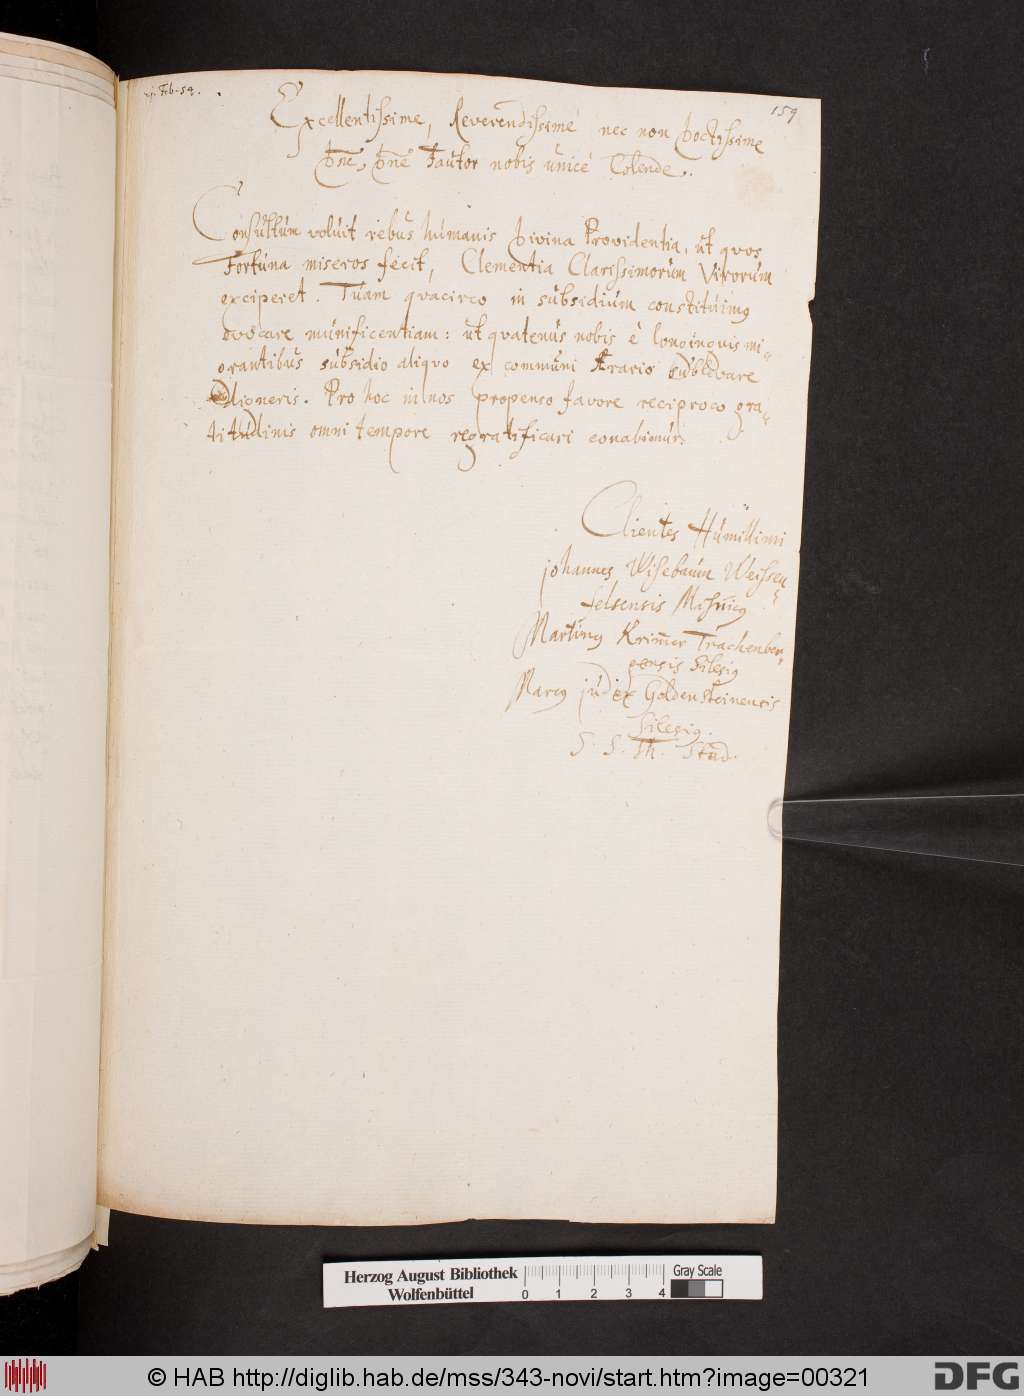 Feb. 54.
159
Excellentissime, Reverendissime nec non Doctissime
Dn̄e, Dn̄e Fautor nobis unicè Colende.
Consultum voluit rebus humanis Divina Providentia, ut quos
Fortuna miseros fecit, Clementia Clarissimorum Virorum
exciperet. Tuam qvacirco in subsidium constituimus
evocare munificentiam: ut qvatenus nobis è longinquis mi-
grantibus subsidio aliqvo ex communi Ærario sublevare
digneris. Pro hoc in nos propenso favore reciproco gra-
titudinis omni tempore regratificari conabimur.
Clientes Humillimi
Johannes Wisebaum Weissen-
felsensis Misnicus
Martinus Krim̄er Trachenber-
gensis Silesius
Marcus Judex Goldensteinensis
Silesius.
S. S. Th. Stud.
Herzog August Bibliothek
Wolfenbüttel
0 1 2 3 4
Gray Scale
© HAB http://diglib.hab.de/mss/343-novi/start.htm?image=00321
DFG